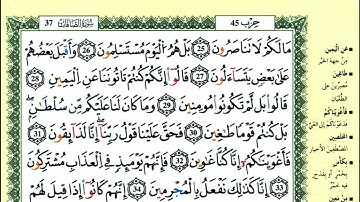 حزب 45
سُورَةُ الصَّافَّاتِ 37
مَا لَكُمْ لَا تَنَاصَرُونَ 25 بَلْ هُمُ الْيَوْمَ مُسْتَسْلِمُونَ 26 وَأَقْبَلَ بَعْضُهُمْ
عَلَىٰ بَعْضٍ يَتَسَاءَلُونَ 27 قَالُوا إِنَّكُمْ كُنتُمْ تَأْتُونَنَا عَنِ الْيَمِينِ 28
قَالُوا بَل لَّمْ تَكُونُوا مُؤْمِنِينَ 29 وَمَا كَانَ لَنَا عَلَيْكُم مِّن سُلْطَٰنٍ
بَلْ كُنتُمْ قَوْمًا طَٰغِينَ 30 فَحَقَّ عَلَيْنَا قَوْلُ رَبِّنَا إِنَّا لَذَائِقُونَ 31
فَأَغْوَيْنَٰكُمْ إِنَّا كُنَّا غَٰوِينَ 32 فَإِنَّهُمْ يَوْمَئِذٍ فِي الْعَذَابِ مُشْتَرِكُونَ
33 إِنَّا كَذَٰلِكَ نَفْعَلُ بِالْمُجْرِمِينَ 34 إِنَّهُمْ كَانُوا إِذَا قِيلَ لَهُمْ
عن اليمين
من جهة الخير
طاغين
مصرين على
الطغيان
فأغويناكم
فدعوناكم إلى الغي
المخلصين
المصطفين الأخيار
بكأس
بخمر أو بقدح
فيه خمر
من معين